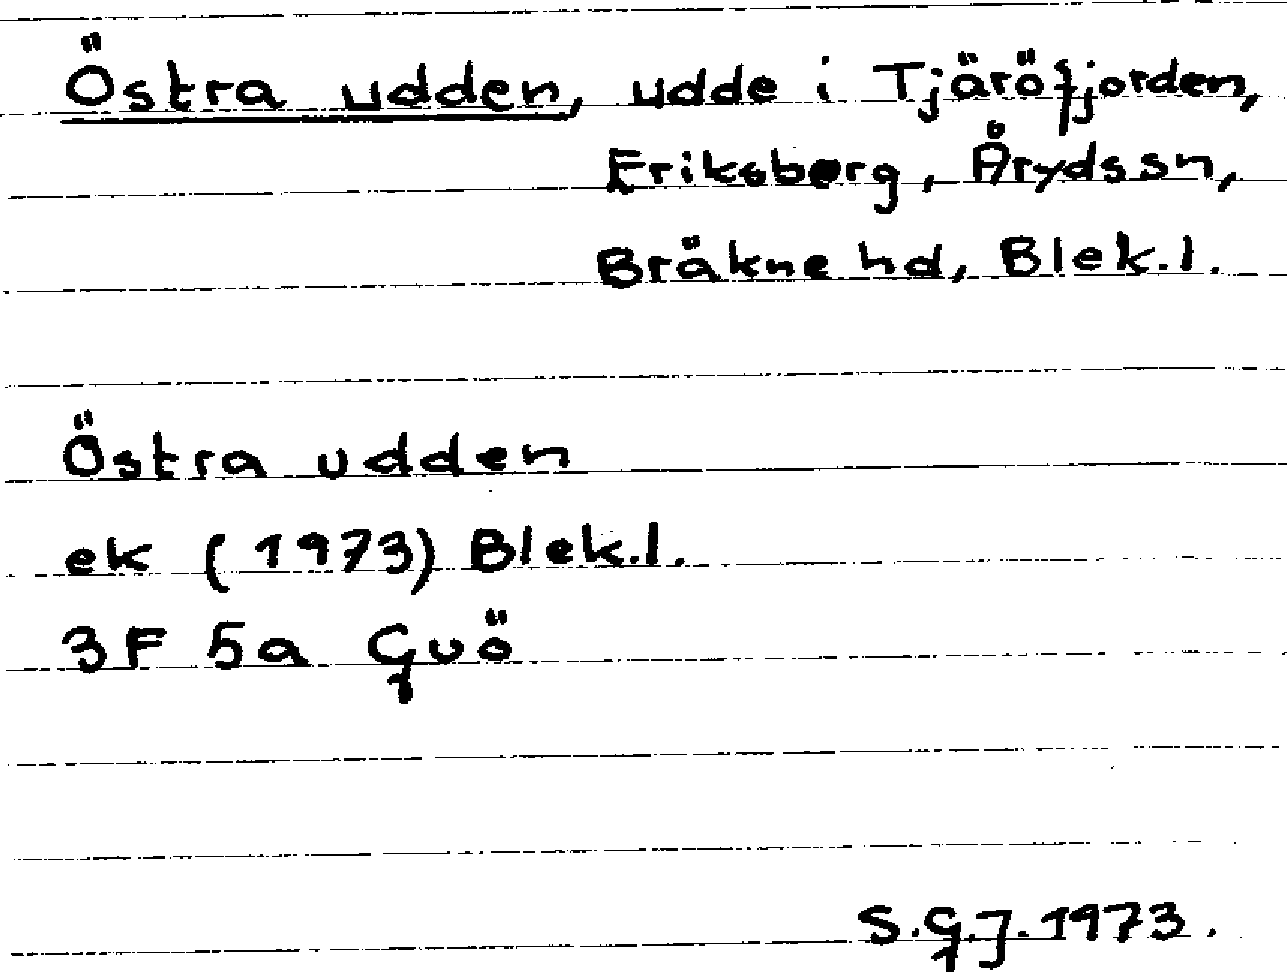 Östra udden, udde i Tjäröfjorden,
Eriksberg, Årydssn,
Bräkne hd, Blek.l.
Östra udden
ek (1973) Blek.l.
3F 5a Guö
S.G.J. 1973.